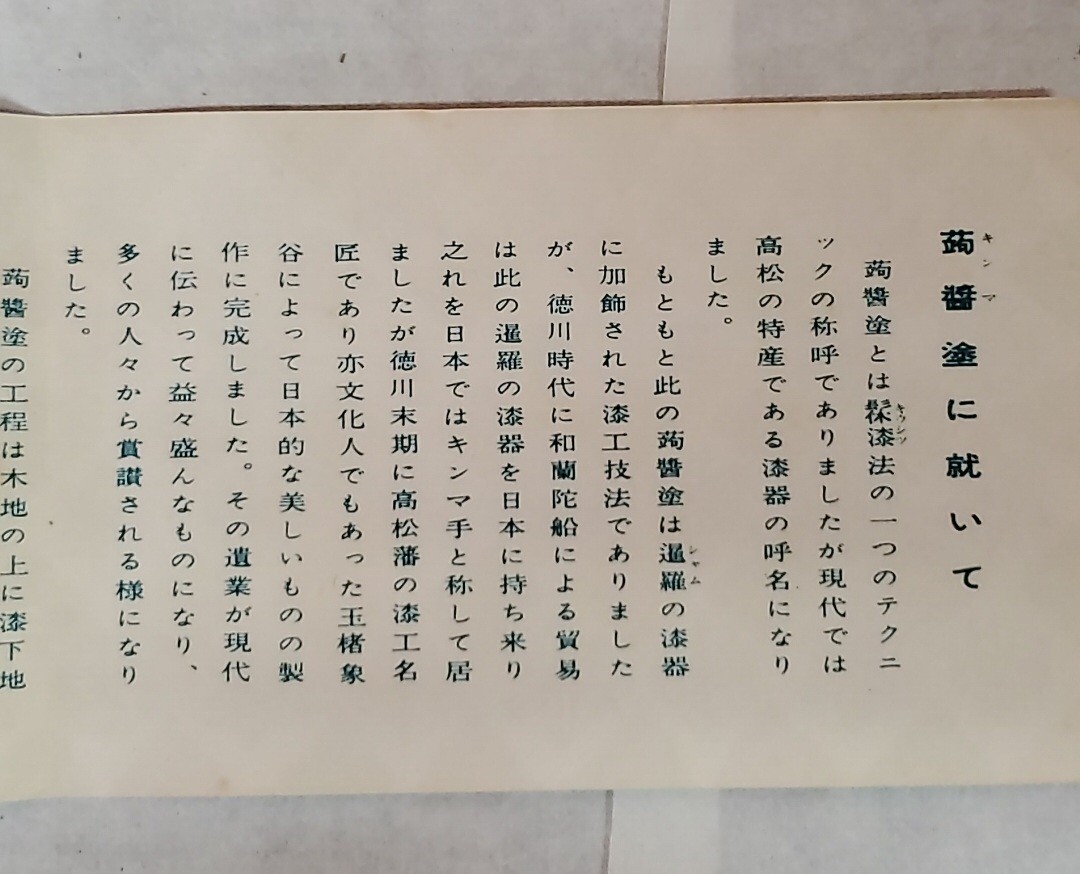 蒟醬塗に就いて
キンマ
蒟醬塗とは髹漆法の一つのテクニ
キウシツ
ックの称呼でありましたが現代では
高松の特産である漆器の呼名になり
ました。
もともと此の蒟醬塗は暹羅の漆器
シャム
に加飾された漆工技法でありました
が、徳川時代に和蘭陀船による貿易
は此の暹羅の漆器を日本に持ち来り
之れを日本ではキンマ手と称して居
ましたが徳川末期に高松藩の漆工名
匠であり亦文化人でもあった玉楮象
谷によって日本的な美しいものの製
作に完成しました。その遺業が現代
に伝わって益々盛んなものになり、
多くの人々から賞讃される様になり
ました。
蒟醬塗の工程は木地の上に漆下地